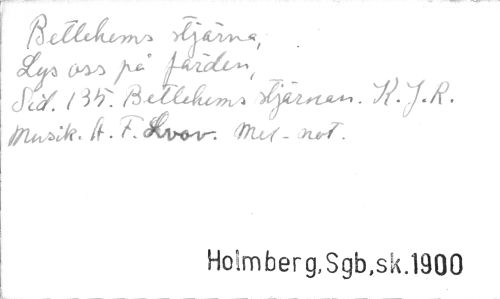 Betlehems stjärna,
Lys oss på färden,
Sid. 135. Betlehems stjärnan. K.J.R.
Musik. A. F. Lvov. Mel-not.
Holmberg,Sgb,sk.1900